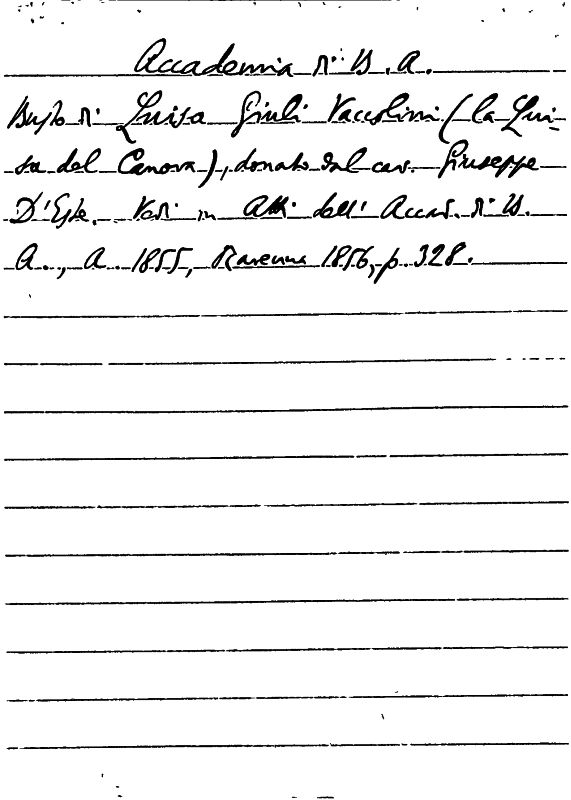 Accademia di B. A.
Busto di Luisa Giuli Vaccolini (la Lui-
sa del Canova), donato dal cav. Giuseppe
D'Este. Vedi in Atti dell' Accad. di B.
A., A. 1855, Ravenna 1856, p. 328.